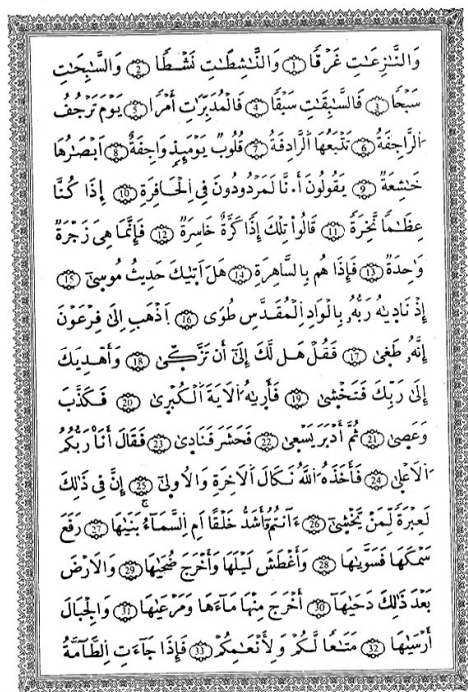 وَالنَّٰزِعَٰتِ غَرْقًا ① وَالنَّٰشِطَٰتِ نَشْطًا ② وَالسَّٰبِحَٰتِ
سَبْحًا ③ فَالسَّٰبِقَٰتِ سَبْقًا ④ فَالْمُدَبِّرَٰتِ أَمْرًا ⑤ يَوْمَ تَرْجُفُ
اَ۬لرَّاجِفَةُ ⑥ تَتْبَعُهَا اَ۬لرَّادِفَةُ ⑦ قُلُوبٌ يَوْمَئِذٍ وَاجِفَةٌ ⑧ اَبْصَٰرُهَا
خَٰشِعَةٌ ⑨ يَقُولُونَ أَ.نَّا لَمَرْدُودُونَ فِى اِ۬لْحَافِرَةِ ⑩ إِذَا كُنَّا
عِظَٰمًا نَّخِرَةً ⑪ قَالُوا۟ تِلْكَ إِذًا كَرَّةٌ خَاسِرَةٌ ⑫ فَإِنَّمَا هِىَ زَجْرَةٌ
وَٰحِدَةٌ ⑬ فَإِذَا هُم بِالسَّاهِرَةِ ⑭ هَلَ اَتَيٰكَ حَدِيثُ مُوسَىٰٓ ⑮
إِذْ نَادَيٰهُ رَبُّهُۥ بِالْوَادِ اِ۬لْمُقَدَّسِ طُوَى ⑯ اَ۪ذْهَبِ اِلَىٰ فِرْعَوْنَ
إِنَّهُۥ طَغَىٰ ⑰ فَقُلْ هَل لَّكَ إِلَىٰٓ أَن تَزَّكَّىٰ ⑱ وَأَهْدِيَكَ
إِلَىٰ رَبِّكَ فَتَخْشَىٰ ⑲ فَأَر۪يٰهُ اُ۬لَايَةَ اَ۬لْكُبْر۪ىٰ ⑳ فَكَذَّبَ
وَعَصَىٰ ㉑ ثُمَّ أَدْبَرَ يَسْعَىٰ ㉒ فَحَشَرَ فَنَادَىٰ ㉓ فَقَالَ أَنَا۠ رَبُّكُمُ
اُ۬لَاعْلَىٰ ㉔ فَأَخَذَهُ اُ۬للَّهُ نَكَالَ اَ۬لَاخِرَةِ وَالُاولَىٰٓ ㉕ إِنَّ فِى ذَٰلِكَ
لَعِبْرَةً لِّمَنْ يَّخْشَىٰٓ ㉖ ءَآنتُمُۥٓ أَشَدُّ خَلْقًا اَمِ اِ۬لسَّمَآءُ بَنَيٰهَا ㉗ رَفَعَ
سَمْكَهَا فَسَوَّيٰهَا ㉘ وَأَغْطَشَ لَيْلَهَا وَأَخْرَجَ ضُحَيٰهَا ㉙ وَالَارْضَ
بَعْدَ ذَٰلِكَ دَحَيٰهَا ㉚ أَخْرَجَ مِنْهَا مَآءَهَا وَمَرْعَيٰهَا ㉛ وَالْجِبَالَ
أَرْسَيٰهَا ㉜ مَتَٰعًا لَّكُمْ وَلِأَنْعَٰمِكُمْ ㉝ فَإِذَا جَآءَتِ اِ۬لطَّآمَّةُ